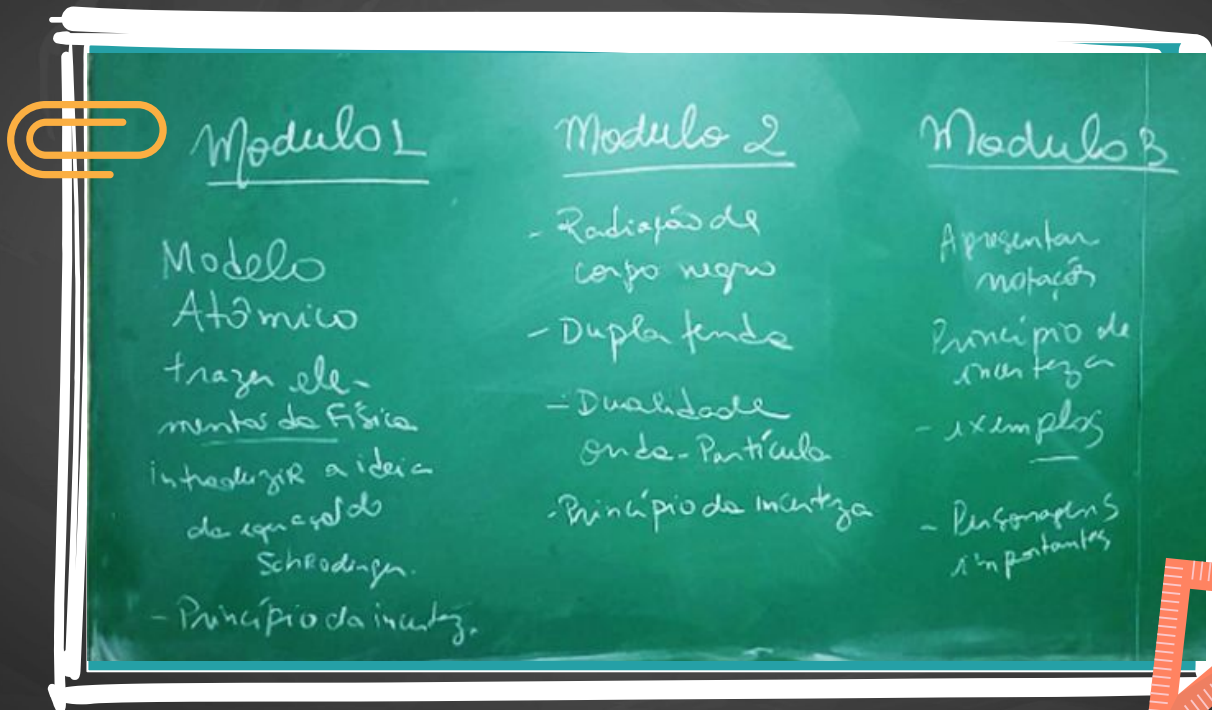 Modulo 1
Modelo
Atômico
trazer ele-
mentos da Física
introduzir a ideia
da equação do
Schrodinger.
- Princípio da incertez.
Modulo 2
- Radiação de
corpo negro
- Dupla fenda
- Dualidade
onda-Partícula
- Princípio da incerteza
Modulo 3
Apresentar
notação
Princípio de
incerteza
- exemplos
- Personagens
importantes